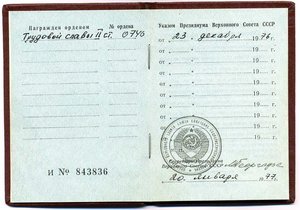 Награжден орденом
№ ордена
Трудовой славы II ст. 0746
И № 843836
Указом Президиума Верховного Совета СССР
от 23 декабря 1976 г.
от 19 г.
от 19 г.
от 19 г.
от 19 г.
от 19 г.
от 19 г.
от 19 г.
Секретарь Президиума
Верховного Совета
20 января 1977.